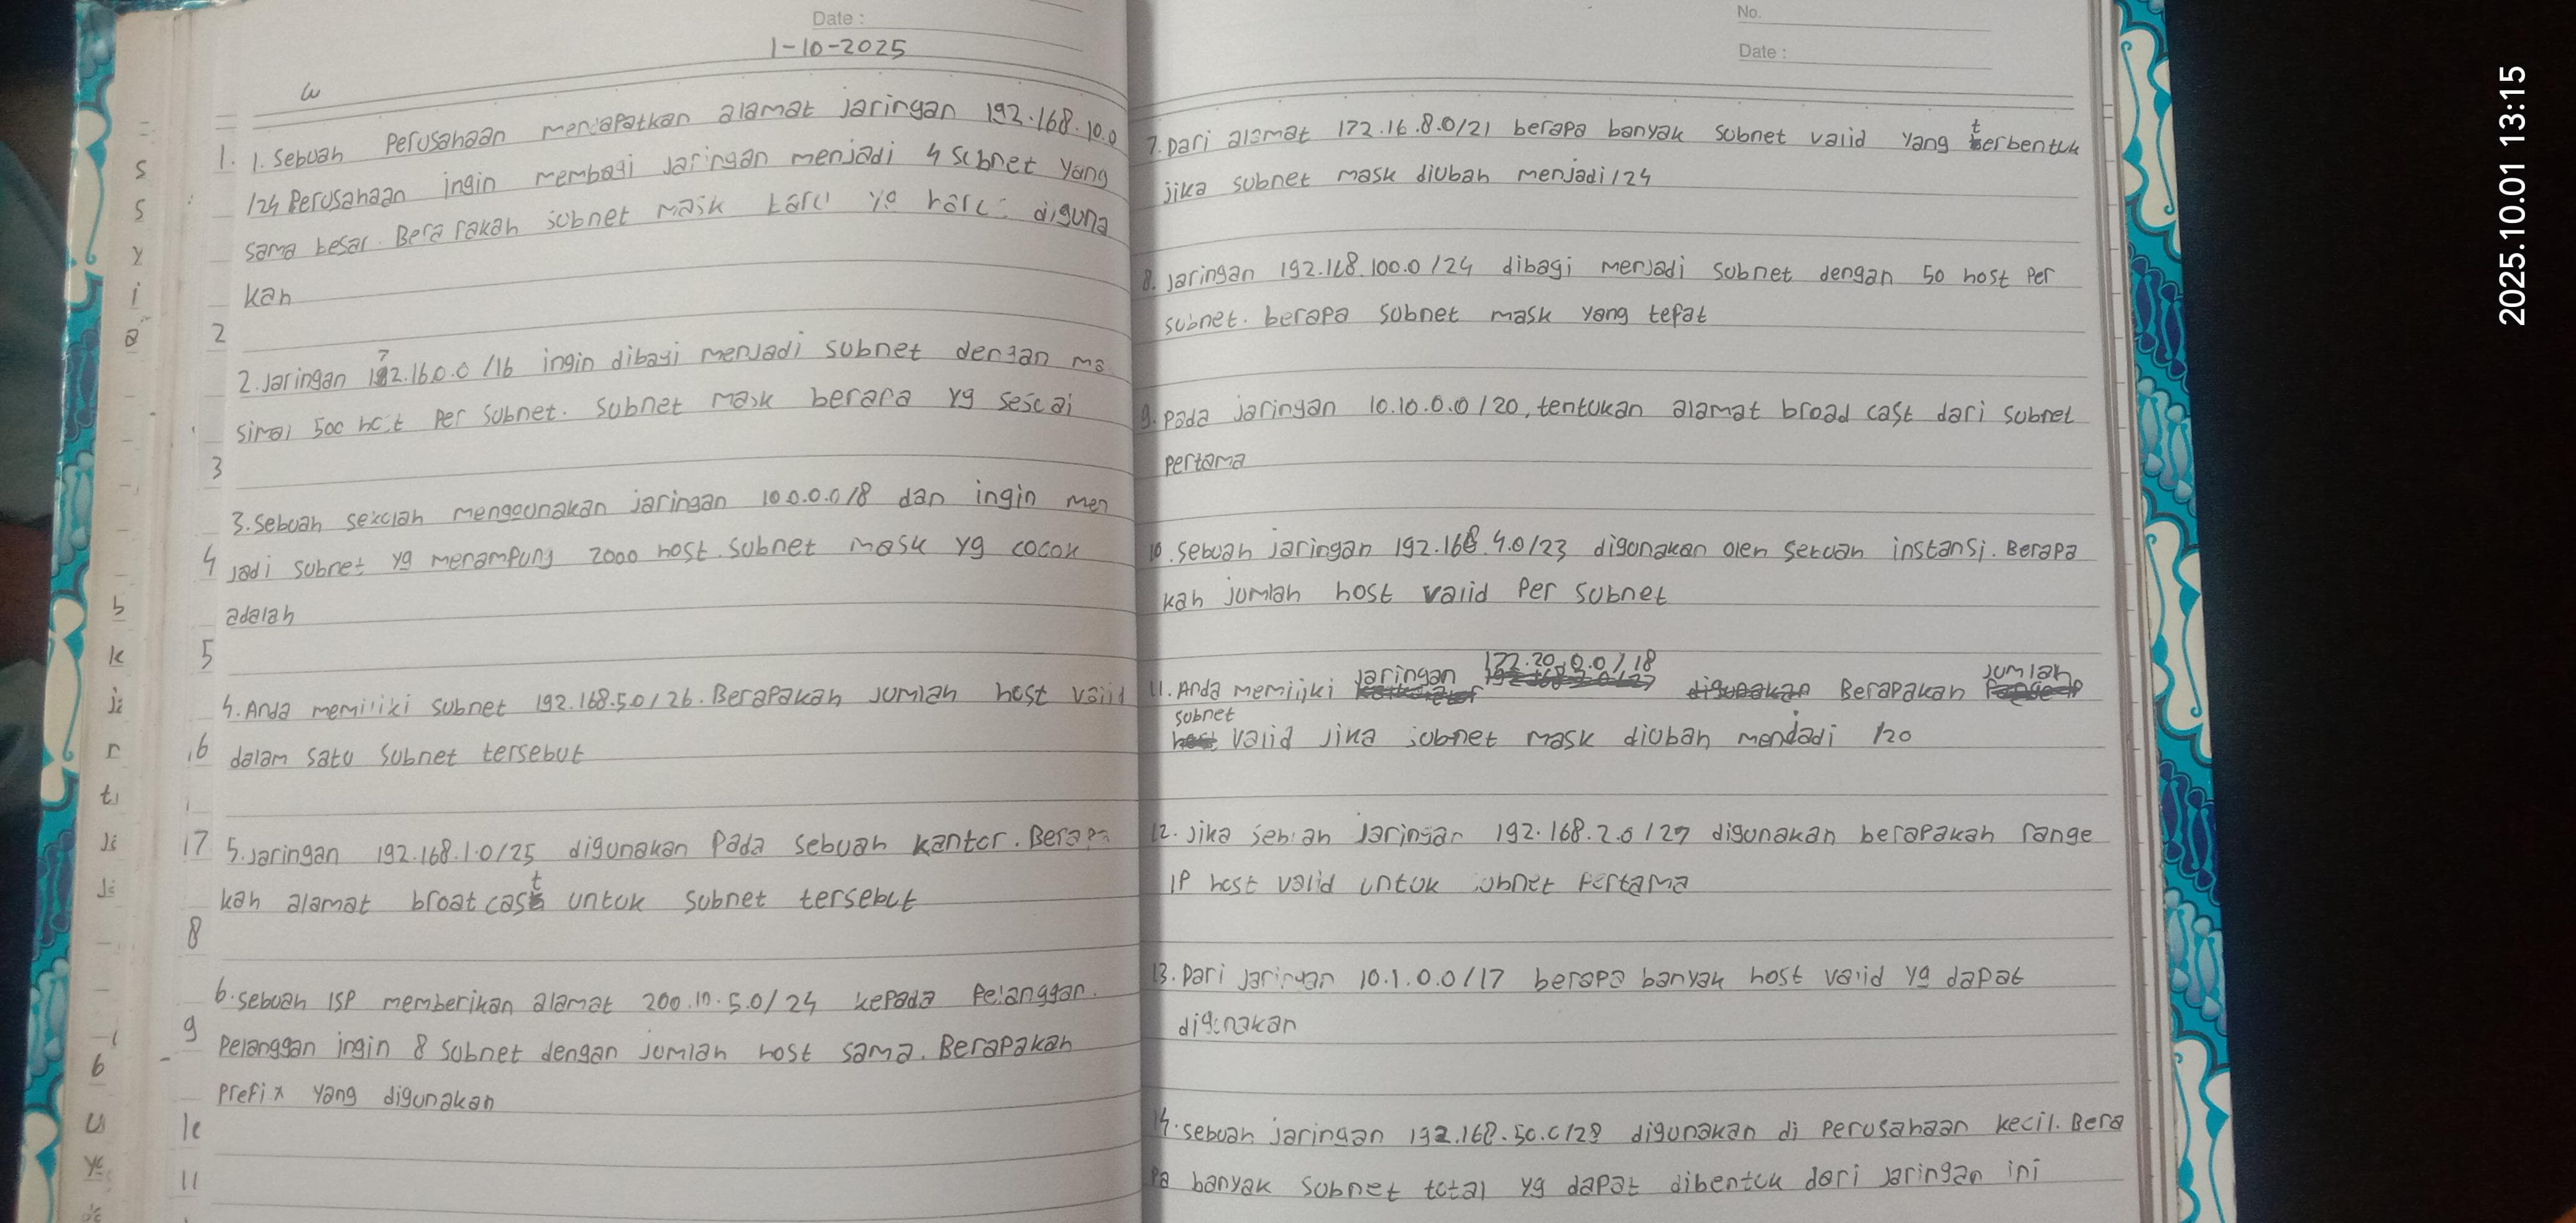 Date :
1-10-2025
1. 1. Sebuah Perusahaan mendapatkan alamat jaringan 192.168.10.0
/24 Perusahaan ingin membagi jaringan menjadi 4 subnet yang
sama besar. Berapakah subnet mask baru yg harus diguna
kan
2
2. Jaringan 172.16.0.0 /16 ingin dibagi menjadi subnet dengan ma
simal 500 host Per subnet. subnet mask berapa yg sesuai
3
3. Sebuah sekolah menggunakan jaringan 10.0.0.0/8 dan ingin men
4
jadi subnet yg menampung 2000 host. subnet mask yg cocok
adalah
5
4. Anda memiliki subnet 192.168.5.0/26. Berapakah jumlah host valid
6
dalam satu subnet tersebut
17
5. Jaringan 192.168.1.0/25 digunakan Pada sebuah kantor. Berapa
kah alamat broatcast untuk subnet tersebut
8
6. sebuah ISP memberikan alamat 200.10.5.0/24 kepada Pelanggan.
9
Pelanggan ingin 8 subnet dengan jumlah host sama. Berapakah
Prefix yang digunakan
11
No.
Date :
7. Dari alamat 172.16.8.0/21 berapa banyak subnet valid yang terbentuk
jika subnet mask diubah menjadi /24
8. Jaringan 192.168.100.0 /24 dibagi menjadi subnet dengan 50 host Per
subnet. berapa subnet mask yang tepat
9. Pada jaringan 10.10.0.0/20, tentukan alamat broad cast dari subnet
Pertama
10. Sebuah jaringan 192.168.4.0/23 digunakan oleh sebuah instansi. Berapa
kah jumlah host valid Per subnet
11. Anda memiliki jaringan 172.20.0.0/18 Berapakah jumlah
subnet valid jika subnet mask diubah mendadi /20
12. Jika sebuah Jaringan 192.168.2.0/27 digunakan berapakah range
IP host valid untuk subnet Pertama
13. Dari Jaringan 10.1.0.0/17 berapa banyak host valid yg dapat
digunakan
14. sebuah jaringan 192.168.50.0/28 digunakan di Perusahaan kecil. Bera
Pa banyak subnet total yg dapat dibentuk dari jaringan ini
2025.10.01 13:15